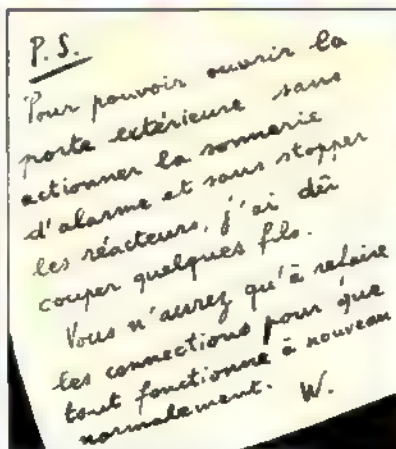 P.S.
Pour pouvoir ouvrir la
porte extérieure sans
actionner la sonnerie
d'alarme et sans stopper
les réacteurs, j'ai dû
couper quelques fils.
Vous n'aurez qu'à refaire
les connections pour que
tout fonctionne à nouveau
normalement.
W.